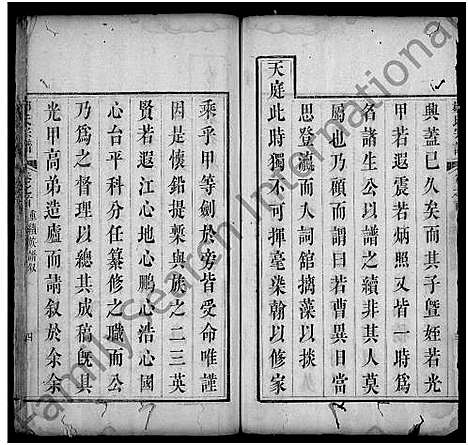 興蓋已久矣而其子曁姪若光
甲若遐震若炳照又皆一時爲
名諸生僉以譜之續非其人莫
屬也乃顧而謂曰若曹異日當
思登瀛而人詞舘摛藻以掞
天庭此時獨不可揮毫染翰以修家
乘乎甲等劍於旁皆受命唯謹
因是懷鉛提槧與族之二三英
賢若遐江心地心鵬心浩心國
心台平科分任纂修之職而公
乃爲之督理以總其成稿旣其
光甲高弟造廬而請叙於余余
重續族譜叙
四
FamilySearch International